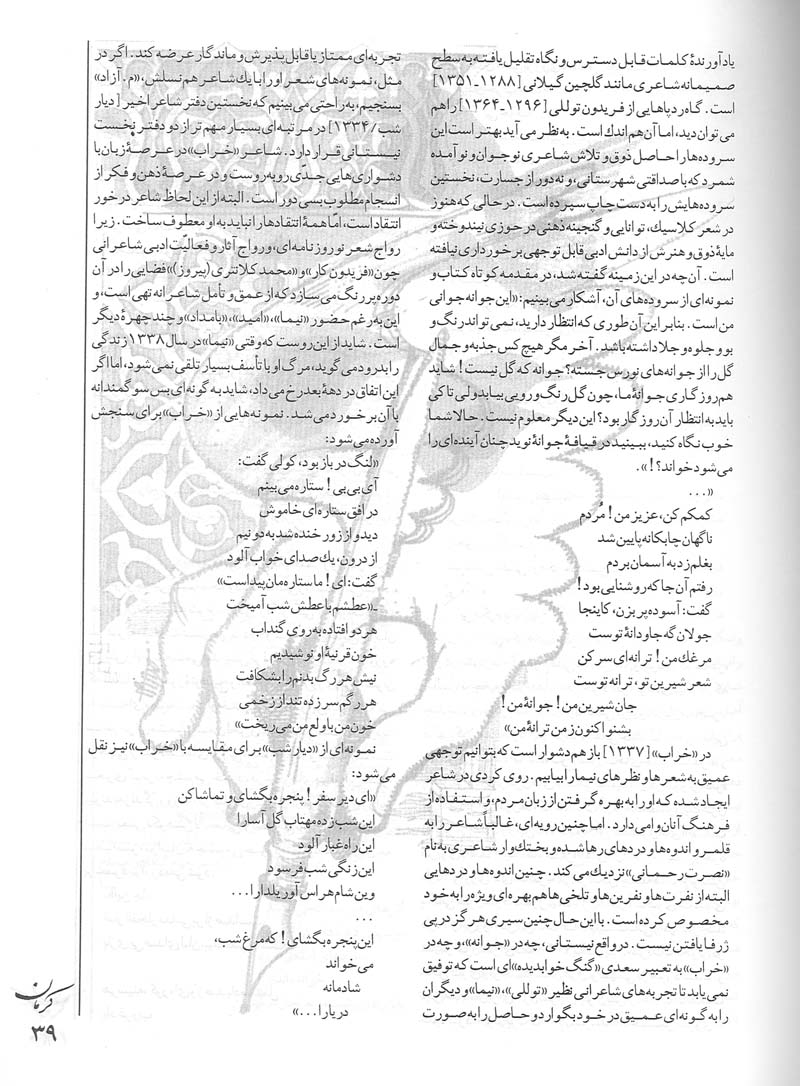 یادآورندهٔ کلمات قابل دسترس و نگاه تقلیل یافته به سطح
صمیمانه شاعری مانند گلچین گیلانی [۱۲۸۸-۱۳۵۱]
است. گاه ردپاهایی از فریدون توللی [۱۲۹۶-۱۳۶۴] را هم
می‌توان دید، اما آن هم اندك است. به نظر می‌آید بهتر است این
سروده‌ها را حاصل ذوق و تلاش شاعری نوجوان و نوآمده
شمرد که با صداقتی شهرستانی، و نه دور از جسارت، نخستین
سروده‌هایش را به دست چاپ سپرده است. در حالی که هنوز
در شعر کلاسیك، توانایی و گنجینه ذهنی در حوزی نیندوخته و
مایهٔ ذوق و هنرش از دانش ادبی قابل توجهی برخورداری نیافته
است. آن چه در این زمینه گفته شد، در مقدمه کوتاه کتاب و
نمونه‌ای از سروده‌های آن، آشکار می‌بینیم: «این جوانه جوانی
من است. بنابر این آن طوری که انتظار دارید، نمی‌تواند رنگ و
بو و جلوه و جلا داشته باشد. آخر مگر هیچ کس جذبه و جمال
گل را از جوانه‌های نورس جسته؟ جوانه که گل نیست! شاید
هم روزگاری جوانهٔ ما، چون گل رنگ و رویی بیابد ولی تا کی
باید به انتظار آن روزگار بود؟ این دیگر معلوم نیست. حالا شما
خوب نگاه کنید، ببینید در قیافهٔ جوانهٔ نوید چنان آینده‌ای را
می‌شود خواند؟!».
«...
کمکم کن، عزیز من! مُردم
ناگهان چابکانه پایین شد
بغلم زد به آسمان بردم
رفتم آن جا که روشنایی بود!
گفت: آسوده پر بزن، کاینجا
جولان گه جاودانهٔ توست
مرغك من! ترانه‌ای سر کن
شعر شیرین تو، ترانه توست
جان شیرین من! جوانهٔ من!
بشنو اکنون ز من ترانهٔ من»
در «خراب» [۱۳۳۷] باز هم دشوار است که بتوانیم توجهی
عمیق به شعرها و نظرهای نیما را بیابیم. روی کردی در شاعر
ایجاد شده که او را به بهره گرفتن از زبان مردم، و استفاده از
فرهنگ آنان وا می‌دارد. اما چنین رویه‌ای، غالباً شاعر را به
قلمرو اندوه‌ها و دردهای رها شده و بختك وار شاعری به نام
«نصرت رحمانی» نزدیك می‌کند. چنین اندوه‌ها و دردهایی
البته از نفرت‌ها و نفرین‌ها و تلخی‌ها هم بهره‌ای ویژه را به خود
مخصوص کرده است. با این حال چنین سیری هرگز در پی
ژرفا یافتن نیست. در واقع نیستانی، چه در «جوانه»، و چه در
«خراب» به تعبیر سعدی «گنگ خوابدیده» ای است که توفیق
نمی‌یابد تا تجربه‌های شاعرانی نظیر «توللی»، «نیما» و دیگران
را به گونه‌ای عمیق در خود بگوارد و حاصل را به صورت
تجربه‌ای ممتاز یا قابل پذیرش و ماندگار عرضه کند. اگر در
مثل، نمونه‌های شعر او را با یك شاعر هم نسلش، «م. آزاد»
بسنجیم، به راحتی می‌بینیم که نخستین دفتر شاعر اخیر [دیار
شب/۱۳۳۴] در مرتبه‌ای بسیار مهم تر از دو دفتر نخست
نیستانی قرار دارد. شاعر «خراب» در عرصهٔ زبان با
دشواری‌هایی جدی روبه‌روست و در عرصهٔ ذهن و فکر از
انسجام مطلوب بسی دور است. البته از این لحاظ شاعر در خور
انتقاد است، امّا همهٔ انتقادها را نباید به او معطوف ساخت. زیرا
رواج شعر نوروزنامه‌ای، و رواج آثار و فعالیّت ادبی شاعرانی
چون «فریدون کار» و «محمد کلانتری (پیروز)» فضایی را در آن
دوره پر رنگ می‌سازد که از عمق و تأمل شاعرانه تهی است، و
این به رغم حضور «نیما»، «امید»، «بامداد» و چند چهرهٔ دیگر
است. شاید از این روست که وقتی «نیما» در سال ۱۳۳۸ زندگی
را بدرود می‌گوید، مرگ او با تأسف بسیار تلقی نمی‌شود، اما اگر
این اتفاق در دههٔ بعد رخ می‌داد، شاید به گونه‌ای بس سوگمندانه
با آن برخورد می‌شد. نمونه‌هایی از «خراب» برای سنجش
آورده می‌شود:
«لنگ در باز بود، کولی گفت:
آی بی بی! ستاره می‌بینم
در افق ستاره‌ای خاموش
دیدو از زور خنده شد به دو نیم
از درون، یك صدای خواب آلود
گفت: ای! ما ستاره مان پیداست»
ـ«عطشم با عطش شب آمیخت
هر دو افتاده به روی گنداب
خون قرنیهٔ او نوشیدیم
نیش هر رگ بدنم را بشکافت
هر رگم سر زده تند از زخمی
خون من با ولع من می‌ریخت»
نمونه‌ای از «دیار شب» برای مقایسه با «خراب» نیز نقل
می‌شود:
«ای دیر سفر! پنجره بگشای و تماشا کن
این شب زده مهتاب گل آسا را
این راه غبار آلود
این زنگی شب فرسود
وین شام هراس آور یلدا را...
...
این پنجره بگشای! که مرغ شب،
می‌خواند
شادمانه
دریا را...»
کرمان
۳۹